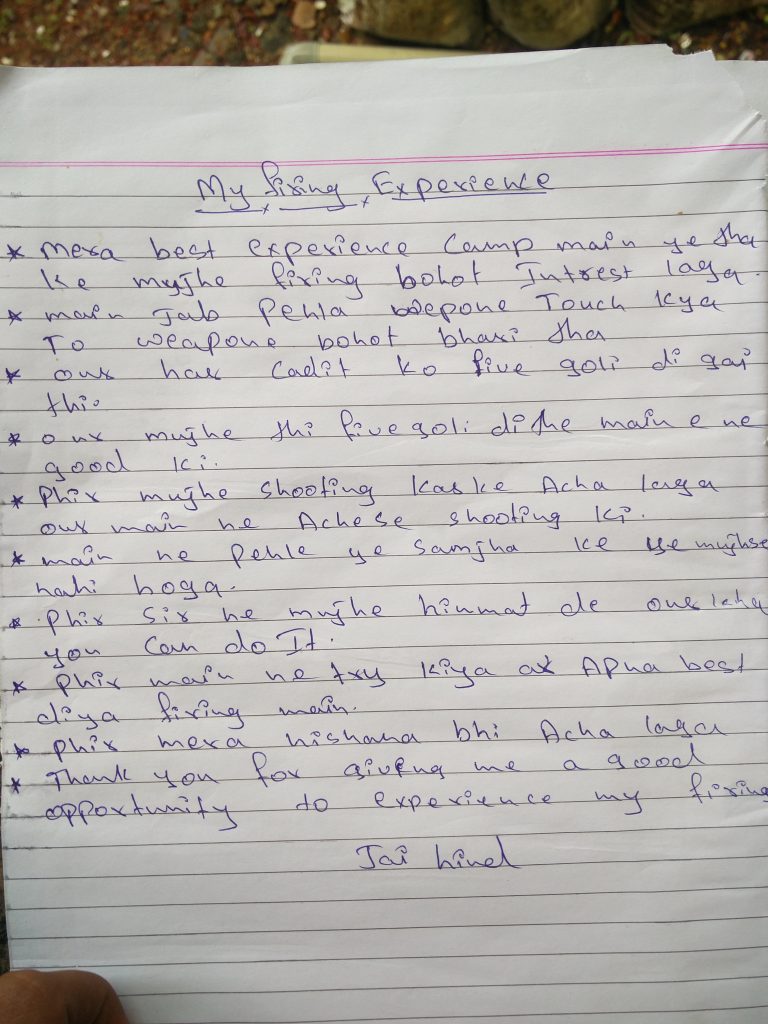 My firing Experience
* Mera best experience Camp main ye tha
ke mujhe firing bohot Intrest laga.
* main Jab Pehla Wepone Touch kya
To weapone bohot bhari tha
* our har Cadit ko five goli di gai
thi.
* our mujhe thi five goli di the main e ne
good ki.
* Phir mujhe shooting Karke Acha laga
our main ne Achese shooting ki.
* main ne Pehle ye samjha ke ye mujhse
nahi hoga.
* Phir Sir ne mujhe himmat de our kha
you Can do It.
* Phir main ne try kiya or Apna best
diya firing main.
* Phir mera nishana bhi Acha laga
* Thank you for giving me a good
opportunity to experience my firing
Jai hind